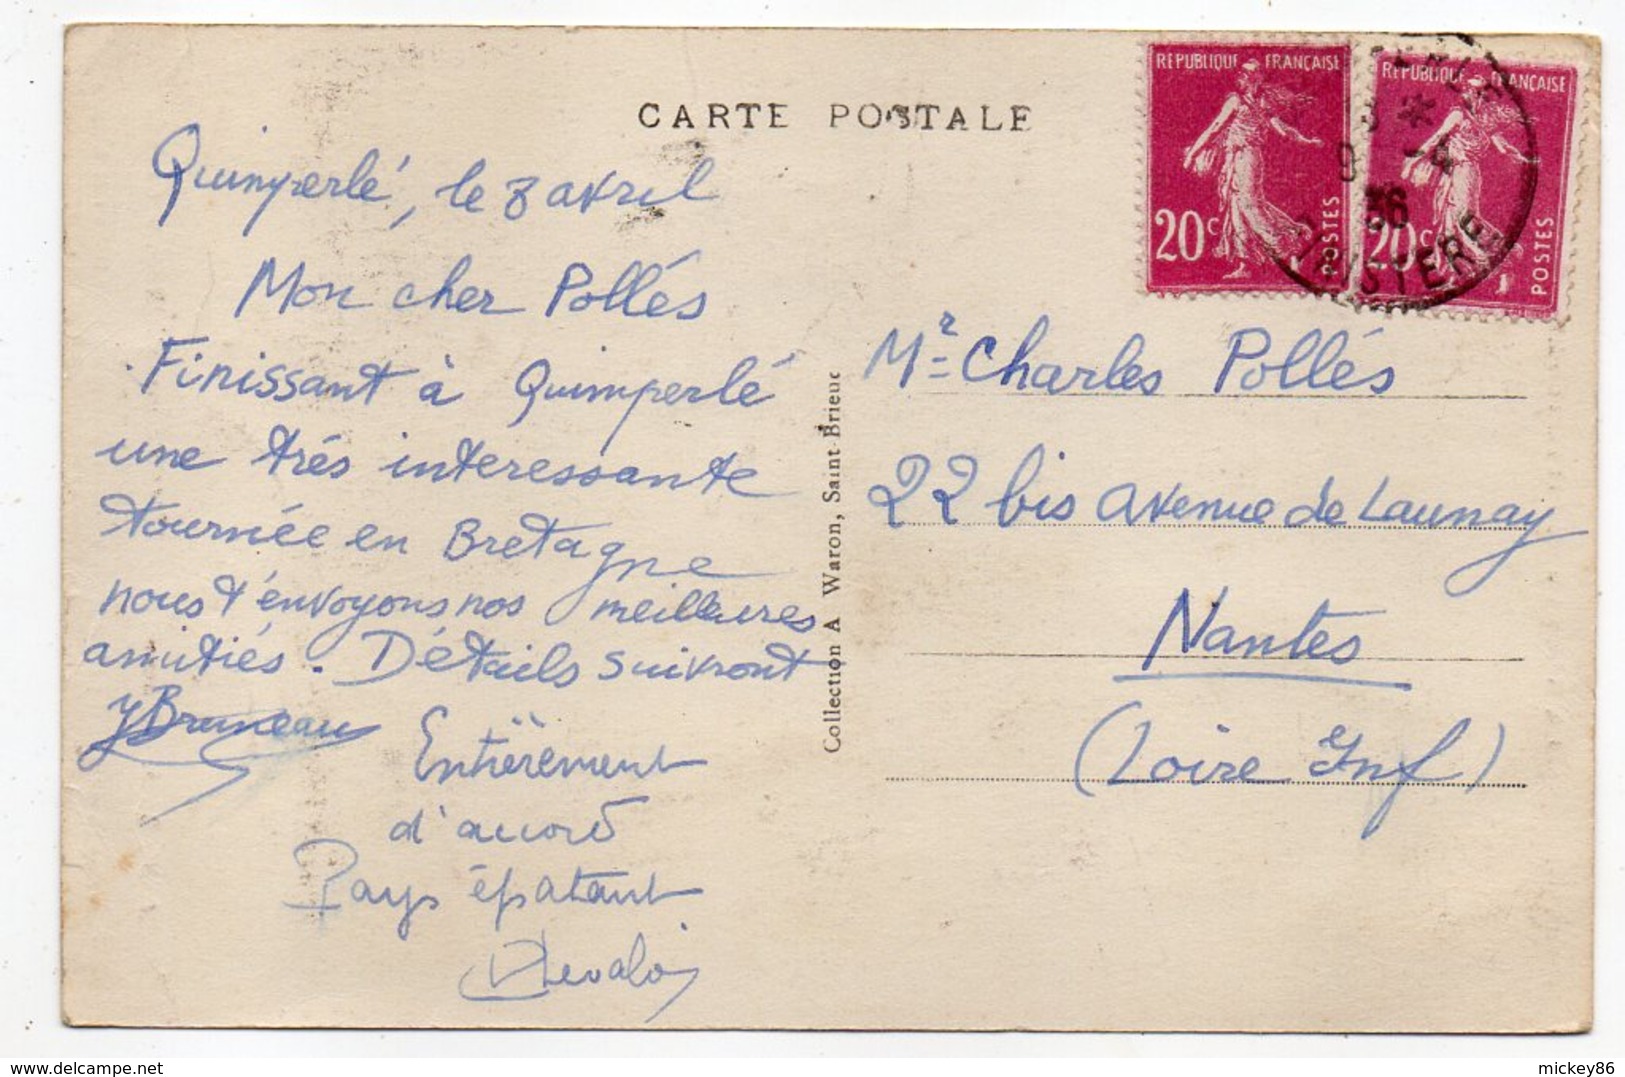 CARTE POSTALE
Quimperlé, le 8 avril
Mon cher Pollés
Finissant à Quimperlé
une trés interessante
tournée en Bretagne
nous t'envoyons nos meilleures
amitiés. Détails suivront
JBruneau
Entièrement
d'accord
Pays épatant
Collection A Waron, Saint-Brieuc
REPUBLIQUE FRANÇAISE
20c
POSTES
REPUBLIQUE FRANÇAISE
20c
POSTES
13 *
9 -4
36
FINISTERE
Mr Charles Pollés
22 bis avenue de Launay
Nantes
(Loire Inf)
mickey86